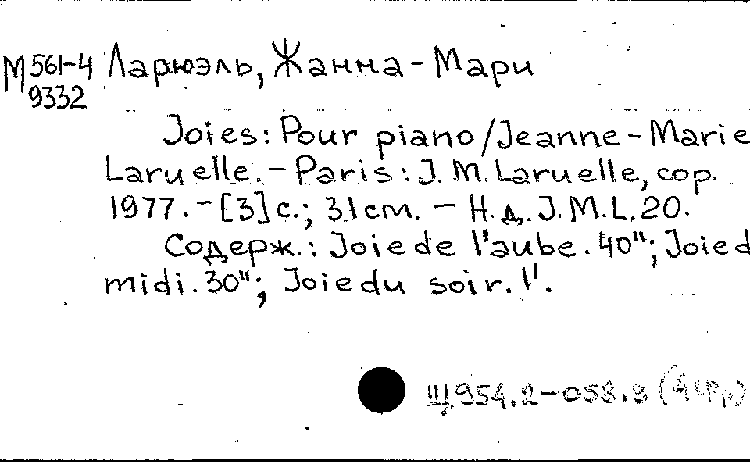 М 561-4 Ларюэль, Жанна-Мари
9332
Joies: Pour piano/Jeanne-Marie
Laruelle. - Paris: J. M. Laruelle, cop.
1977. - [3] с.; 31 cm. - Н. д. J. M. L. 20.
Содерж.: Joie de l'aube. 40"; Joie d
midi. 30"; Joie du soir. 1'.
Щ954.2-058.8